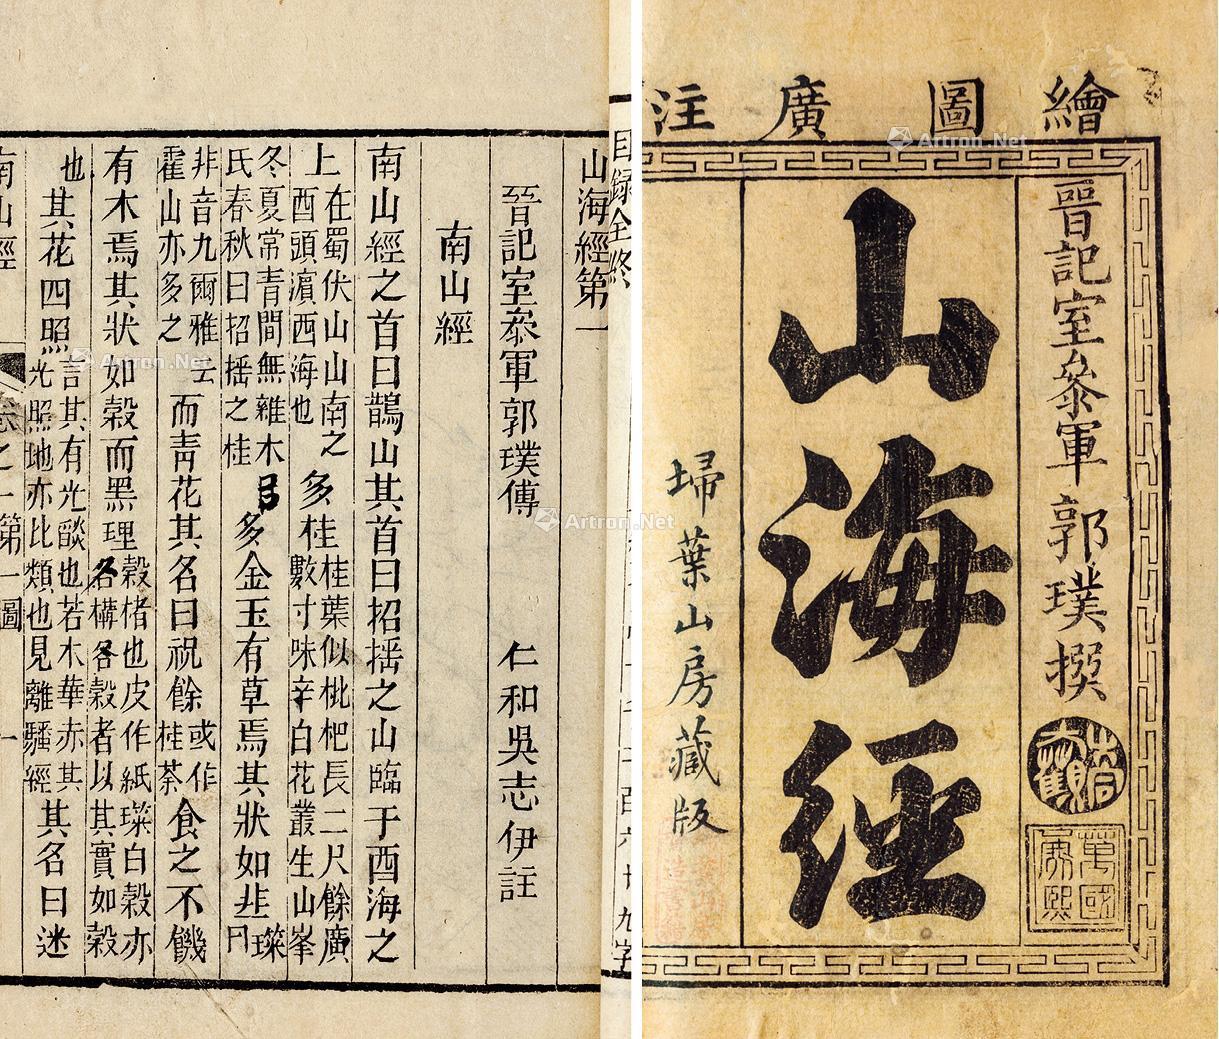 繪圖廣注
晉記室叅軍郭璞撰
山海經
掃葉山房藏版
萬國
Artron.Net
目録全終
山海經第一
晉記室叅軍郭璞傳 仁和吳志伊註
南山經
南山經之首曰䧿山其首曰招揺之山臨于西海之
上在蜀伏山山南之西頭濵西海也多桂桂葉似枇杷長二尺餘廣數寸味辛白花叢生山峯
冬夏常青間無雜木氏春秋曰招揺之桂呂多金玉有草焉其狀如韭璨曰
非音九爾雅云霍山亦多之而青花其名曰祝餘或作桂荼食之不饑
有木焉其狀如榖而黑理榖楮也皮作紙璨白榖亦名構名榖者以其實如榖
也其花四照言其有光燄也若木華赤其光照地亦比類也見離騷經其名曰迷
南山經
卷之一第一圖
一
Artron.Net
Artron.Net